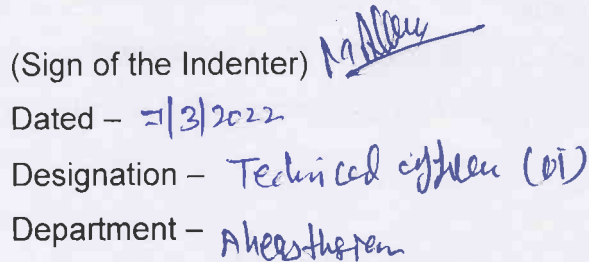 (Sign of the Indenter)
Dated – 7/3/2022
Designation – Technical officer (OT)
Department –